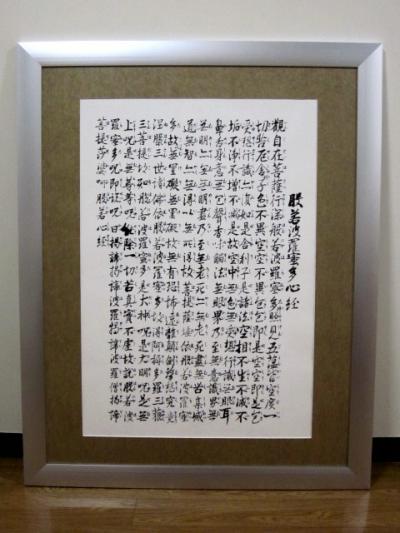 般若波羅蜜多心経
観自在菩薩行深般若波羅蜜多時照見五蘊皆空度一
切苦厄舎利子色不異空空不異色色即是空空即是色
受想行識亦復如是舎利子是諸法空相不生不滅不
垢不浄不増不減是故空中無色無受想行識無眼耳
鼻舌身意無色声香味触法無眼界乃至無意識界無
無明亦無無明尽乃至無老死亦無老死尽無苦集滅
道無智亦無得以無所得故菩提薩埵依般若波羅蜜
多故心無罣礙無罣礙故無有恐怖遠離顛倒夢想究竟
涅槃三世諸仏依般若波羅蜜多故得阿耨多羅三藐
三菩提故知般若波羅蜜多是大神呪是大明呪是無
上呪是無等等呪能除一切苦真実不虚故説般若波
羅蜜多呪即説呪曰羯諦羯諦波羅羯諦波羅僧羯諦
菩提薩婆訶般若心経